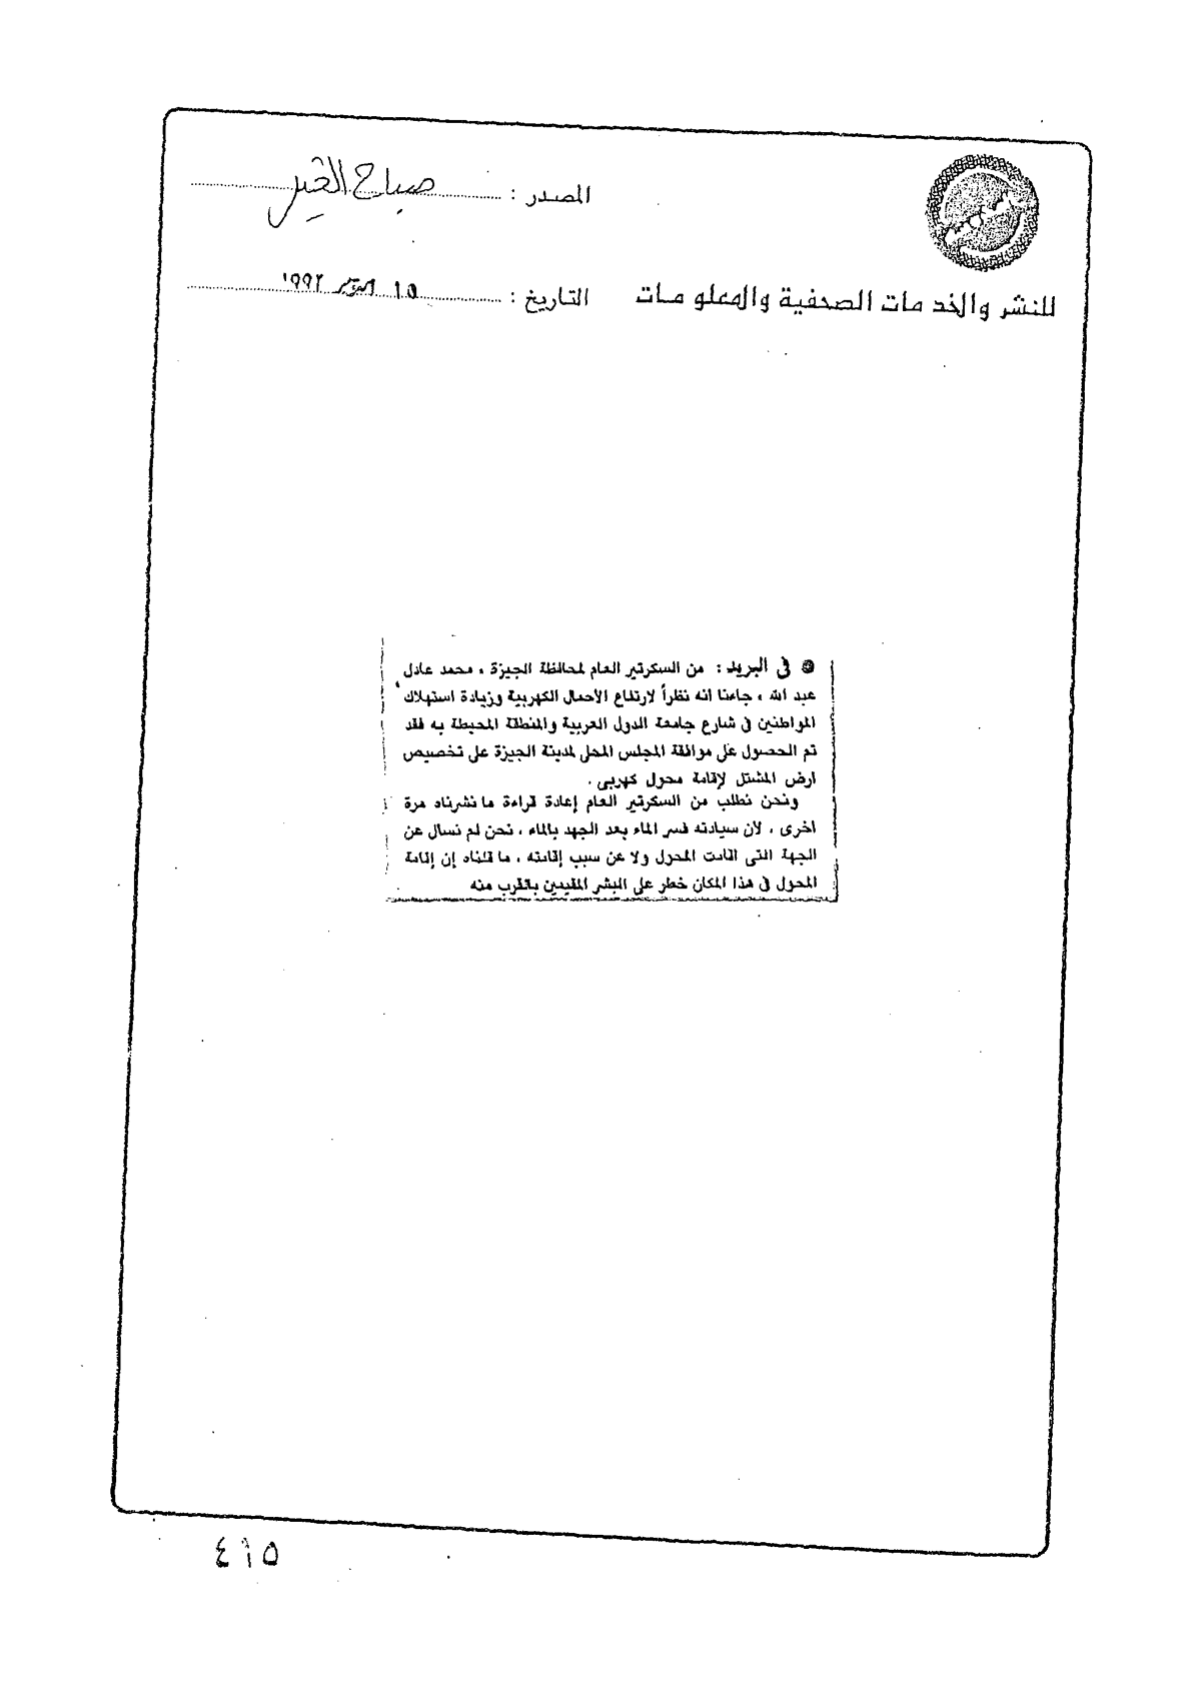 المصدر : صباح الخير
للنشر والخدمات الصحفية والمعلومات
التاريخ : ١٥ اكتوبر ١٩٩٢
في البريد : من السكرتير العام لمحافظة الجيزة ، محمد عادل
عبد الله ، جاءنا انه نظراً لارتفاع الأحمال الكهربية وزيادة استهلاك
المواطنين في شارع جامعة الدول العربية والمنطقة المحيطة به فقد
تم الحصول على موافقة المجلس المحلى لمدينة الجيزة على تخصيص
ارض المشتل لإقامة محول كهربى .
ونحن نطلب من السكرتير العام إعادة قراءة ما نشرناه مرة
اخرى ، لأن سيادته فسر الماء بعد الجهد بالماء ، نحن لم نسال عن
الجهة التى اقامت المحول ولا عن سبب إقامته ، ما قلناه إن إقامة
المحول في هذا المكان خطر على البشر المقيمين بالقرب منه
٤١٥